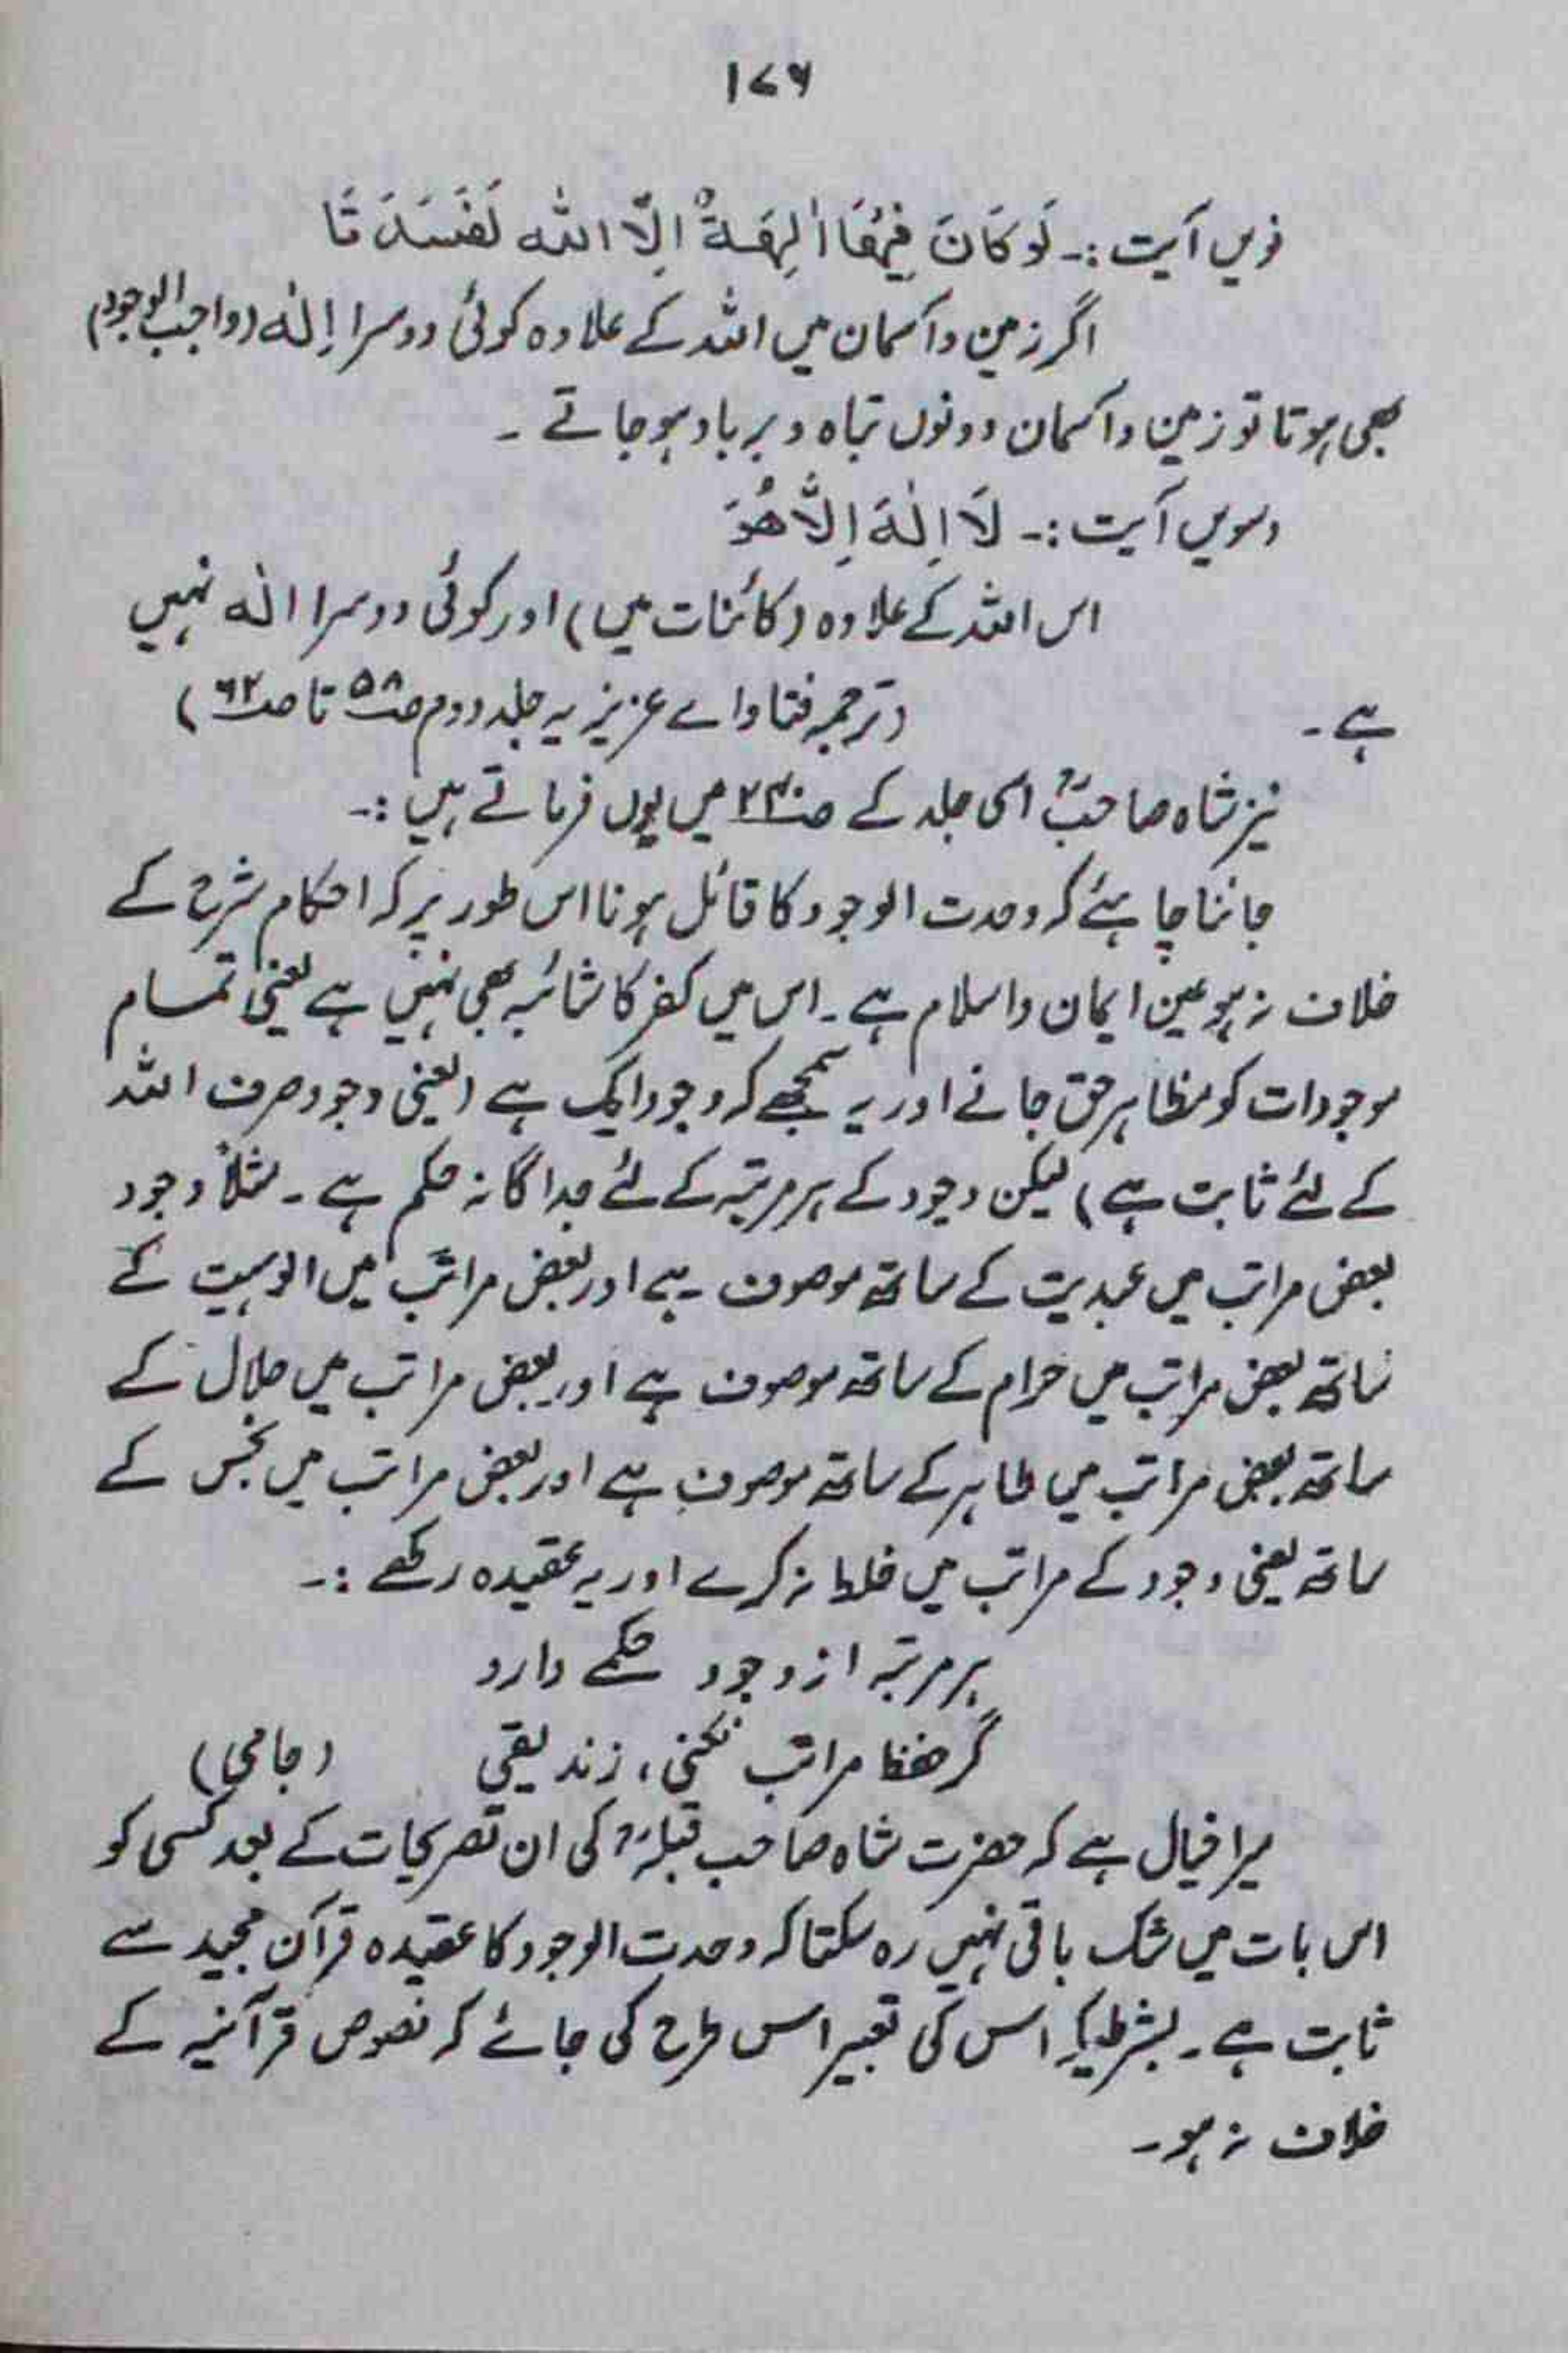 ۱۷۶
نویں آیت :۔ لَوْ كَانَ فِيْهُمَا اٰلِهَةٌ اِلَّا اللّٰه لَفَسَدَ تَا
اگر زمین و آسمان میں اللہ کے علاوہ کوئی دوسرا اِلٰہ (واجب الوجود)
بھی ہوتا تو زمین و آسمان دونوں تباہ و برباد ہو جاتے ۔
دسویں آیت :۔ لَا اِلٰهَ اِلَّا هُوَ
اس اللہ کے علاوہ (کائنات میں) اور کوئی دوسرا الٰہ نہیں
ہے ۔ (ترجمہ فتاواے عزیزیہ جلد دوم صـ۵۸ تا صـ۶۲)
نیز شاہ صاحبؒ اسی جلد کے میں یوں فرماتے ہیں :۔
جاننا چاہئے کہ وحدت الوجود کا قائل ہونا اس طور پر کہ احکام شرع کے
خلاف نہ ہو عین ایمان و اسلام ہے ۔ اس میں کفر کا شائبہ بھی نہیں ہے یعنی تمام
موجودات کو مظاہر حق جانے اور یہ سمجھے کہ وجود ایک ہے (یعنی وجود صرف اللہ
کے لئے ثابت ہے) لیکن وجود کے ہر مرتبہ کے لئے جداگانہ حکم ہے ۔ مثلاً وجود
بعض مراتب میں عبدیت کے ساتھ موصوف ہے اور بعض مراتب میں الوہیت کے
ساتھ بعض مراتب میں حرام کے ساتھ موصوف ہے اور بعض مراتب میں حلال کے
ساتھ بعض مراتب میں طاہر کے ساتھ موصوف ہے اور بعض مراتب میں نجس کے
ساتھ یعنی وجود کے مراتب میں خلط نہ کرے اور یہ عقیدہ رکھے :۔
ہر مرتبہ از وجود حکمے دارد
گر حفظ مراتب نکنی ، زندیقی (جامی)
میرا خیال ہے کہ حضرت شاہ صاحب قبلہؒ کی ان تصریحات کے بعد کسی کو
اس بات میں شک باقی نہیں رہ سکتا کہ وحدت الوجود کا عقیدہ قرآن مجید سے
ثابت ہے ۔ بشرطیکہ اس کی تعبیر اس طرح کی جائے کہ نصوص قرآنیہ کے
خلاف نہ ہو ۔